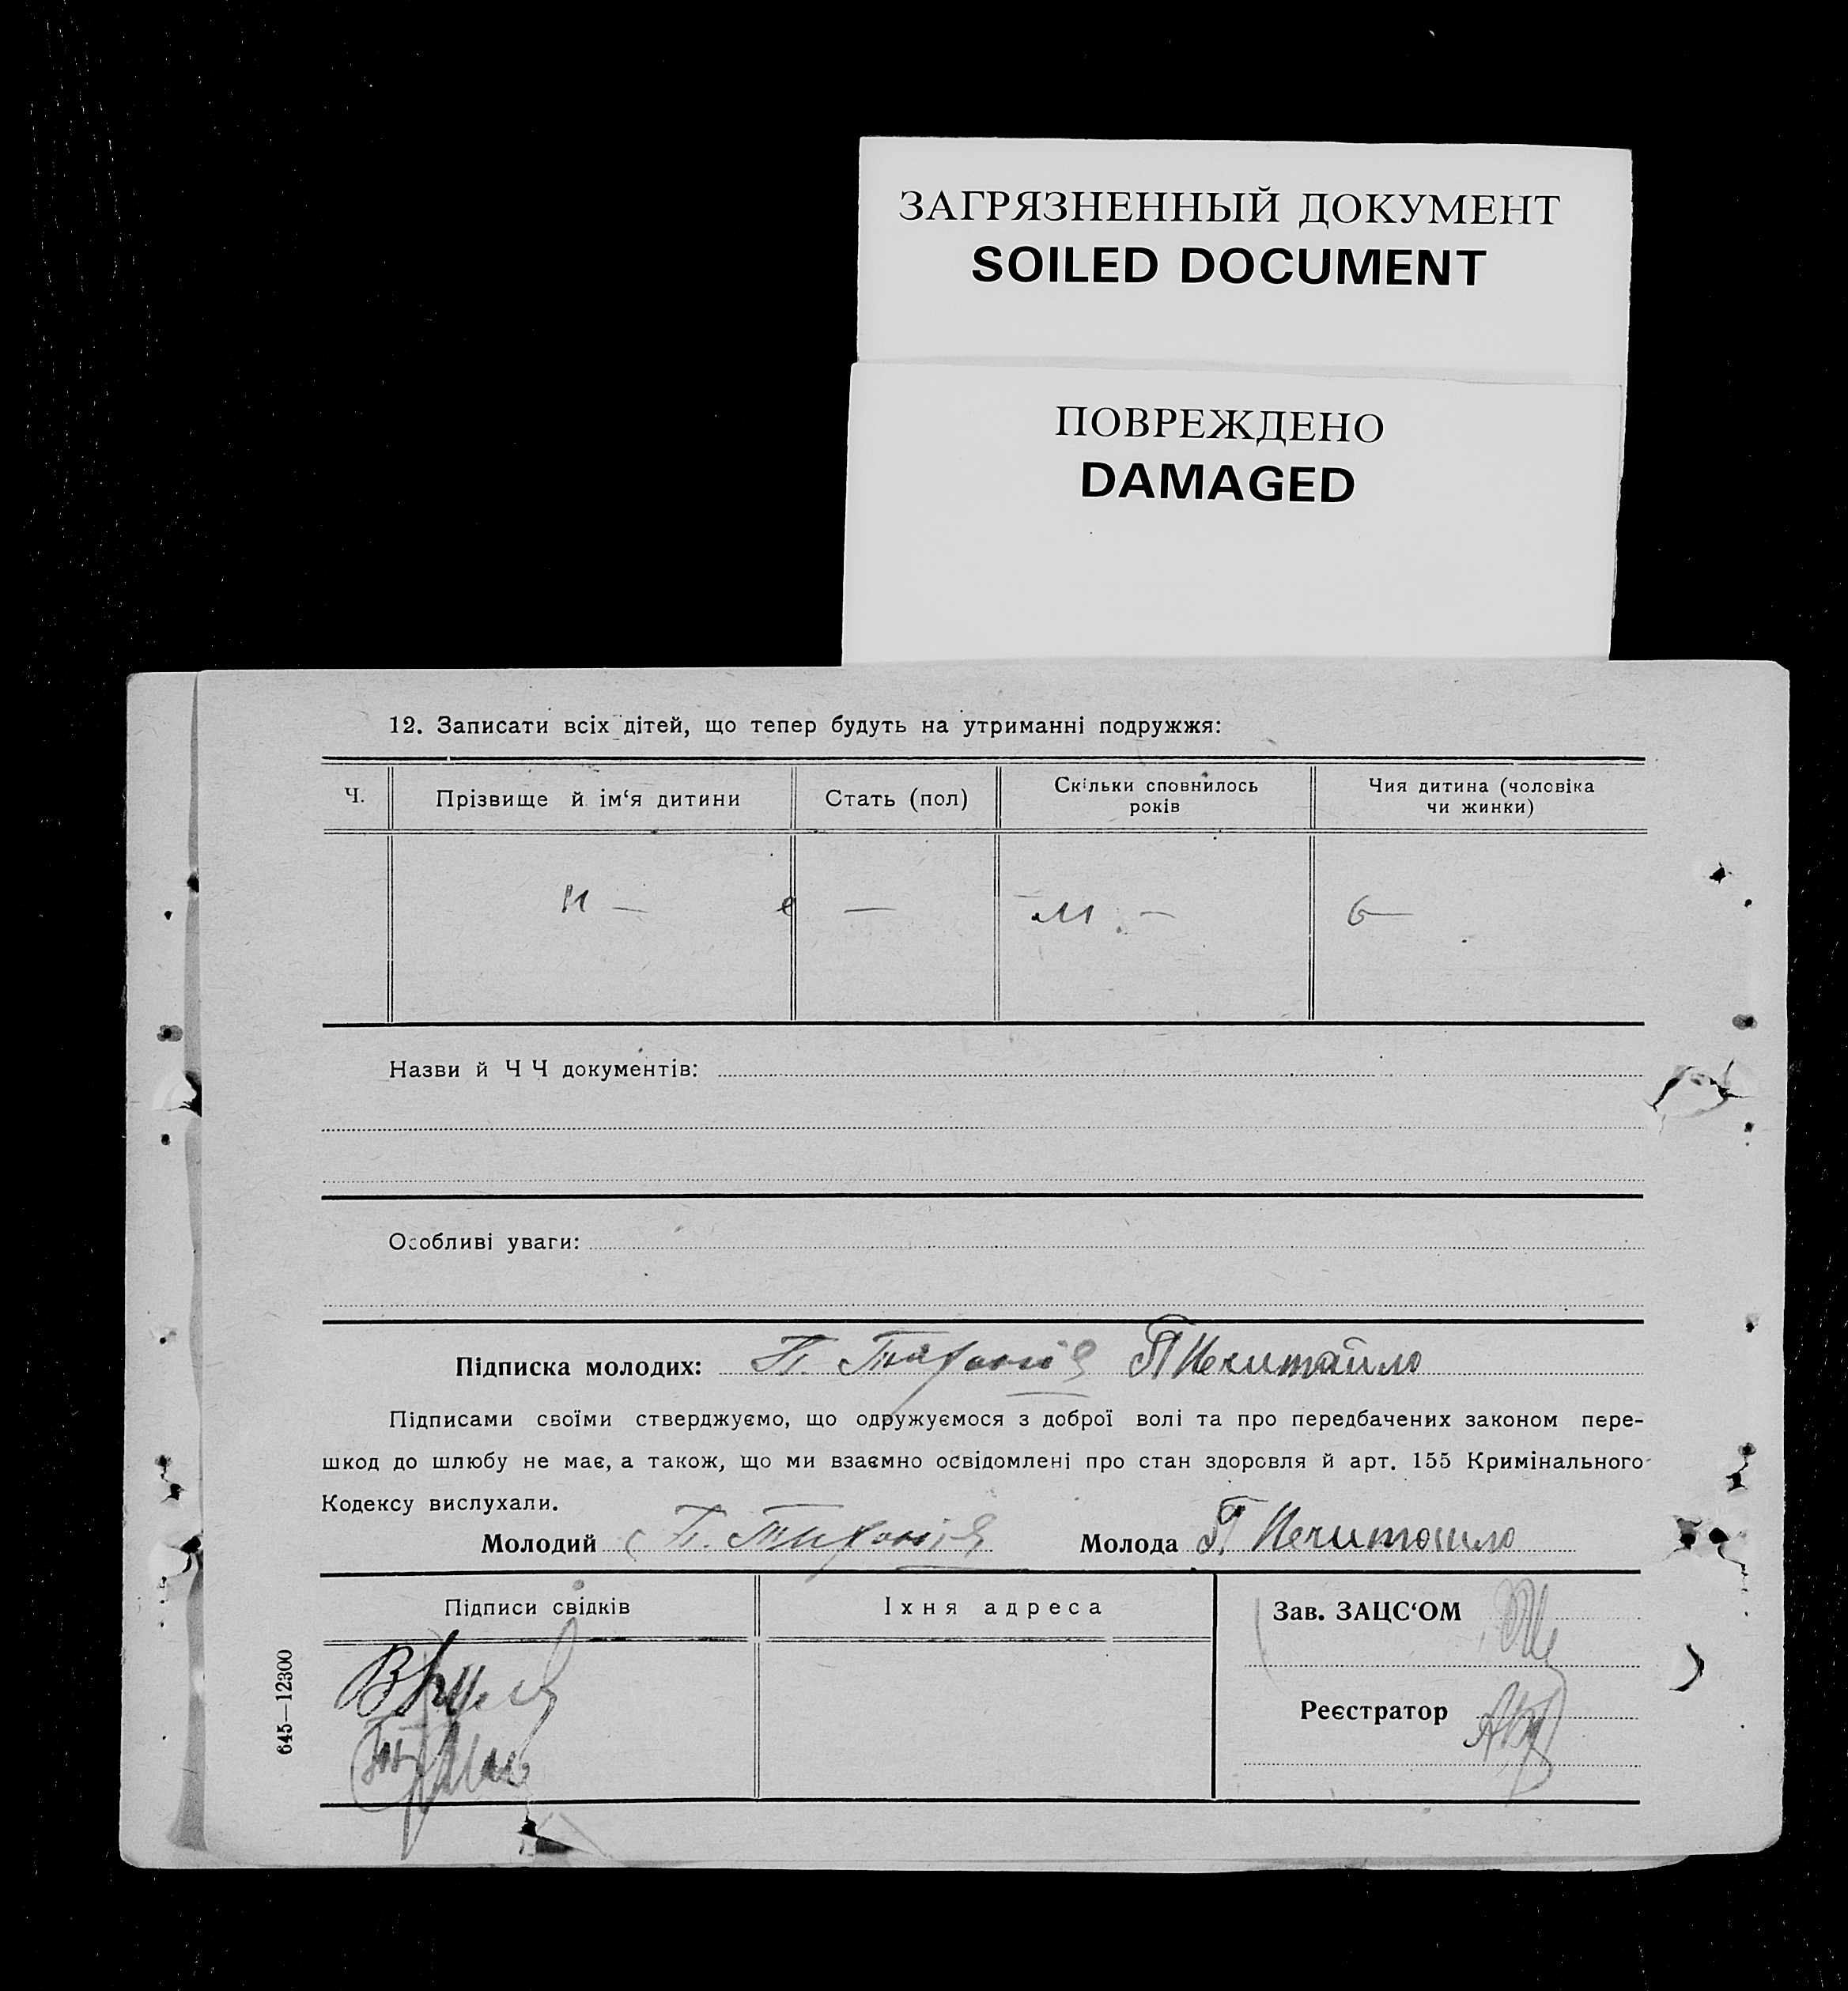 ЗАГРЯЗНЕННЫЙ ДОКУМЕНТ
SOILED DOCUMENT
ПОВРЕЖДЕНО
DAMAGED
12. Записати всіх дітей, що тепер будуть на утриманні подружжя:
Ч.
Прізвище й ім‘я дитини
Стать (пол)
Скільки сповнилось
років
Чия дитина (чоловіка
чи жинки)
н — е — м — б —
Назви й Ч Ч документів:
Особливі уваги:
Підписка молодих: П. П Нечитайло
Підписами своїми стверджуємо, що одружуємося з доброї волі та про передбачених законом пере-
шкод до шлюбу не має, а також, що ми взаємно освідомлені про стан здоровля й арт. 155 Кримінального
Кодексу вислухали.
Молодий П. Молода П Нечитайло
Підписи свідків
Їхня адреса
Зав. ЗАЦС‘ОМ
Реєстратор
645—12300